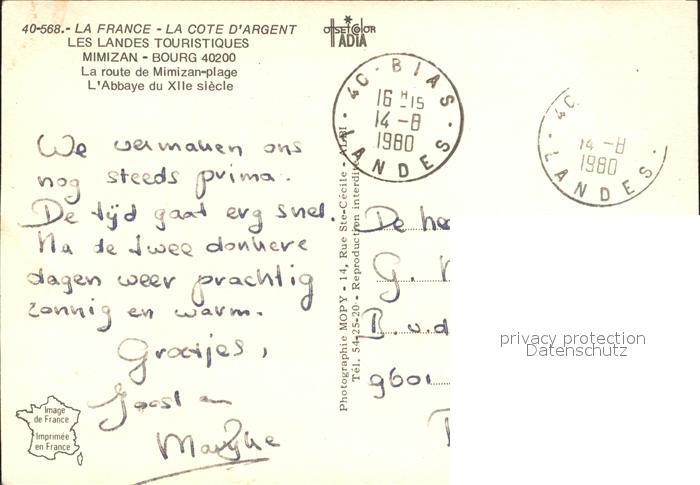 40-568.- LA FRANCE - LA COTE D'ARGENT
LES LANDES TOURISTIQUES
MIMIZAN - BOURG 40200
La route de Mimizan-plage
L'Abbaye du XIIe siècle
OFFSETCOLOR
ADIA
4C. BIAS.
16 H 15
14 -8
1980
LANDES
4C.
14 -8
1980
LANDES.
We vermaken ons
nog steeds prima.
De tijd gaat erg snel.
Na de twee donkere
dagen weer prachtig
zonnig en warm.
Groetjes,
Joost en
Marijke
Photographie MOPY - 14, Rue Ste-Cécile -
Tél. 54-25-20 - Reproduction interdite
De hee
G.
B. v.d
9601
privacy protection
Datenschutz
Image
de France
Imprimée
en France